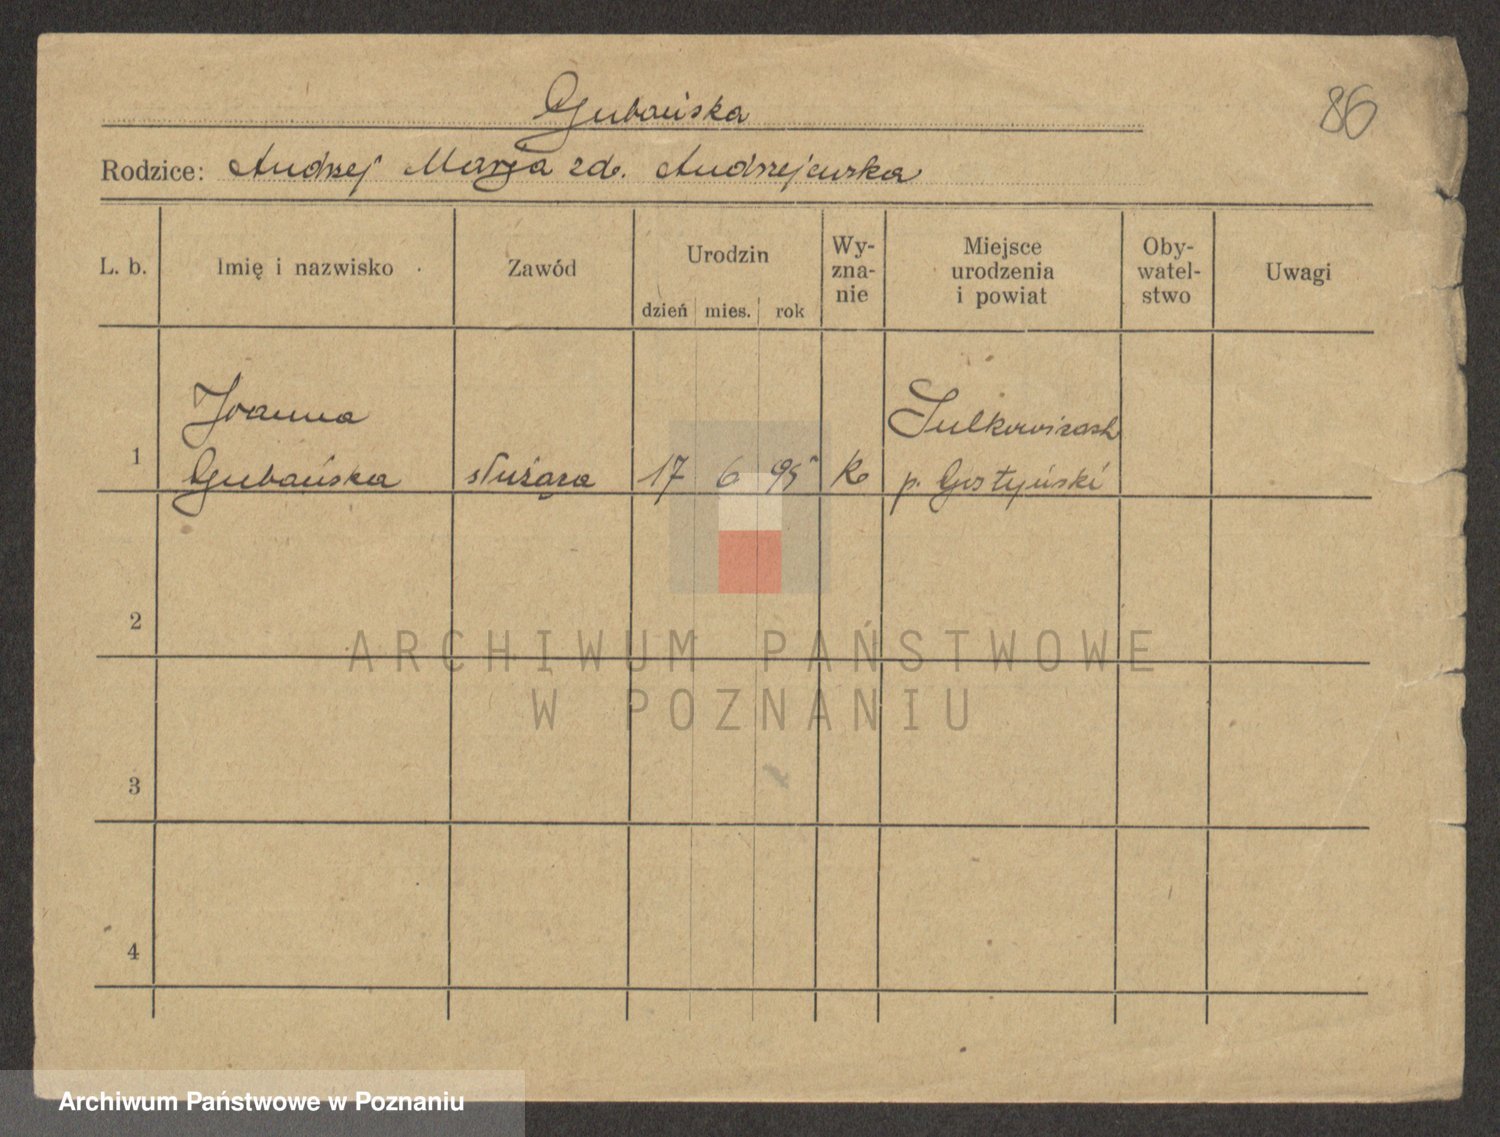 Gubańska
86
Rodzice: Andrzej Marja zd. Andrzejewska
L. b.
Imię i nazwisko
Zawód
Urodzin
dzień mies. rok
Wy-
zna-
nie
Miejsce
urodzenia
i powiat
Oby-
watel-
stwo
Uwagi
1
Joanna
Gubańska
służąca
17 6 95
k
Sulkowicach
p. Gostyński
2
3
4
ARCHIWUM PAŃSTWOWE
W POZNANIU
Archiwum Państwowe w Poznaniu